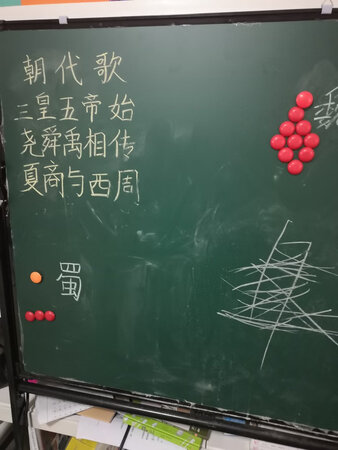 朝代歌
三皇五帝始
尧舜禹相传
夏商与西周
魏
蜀